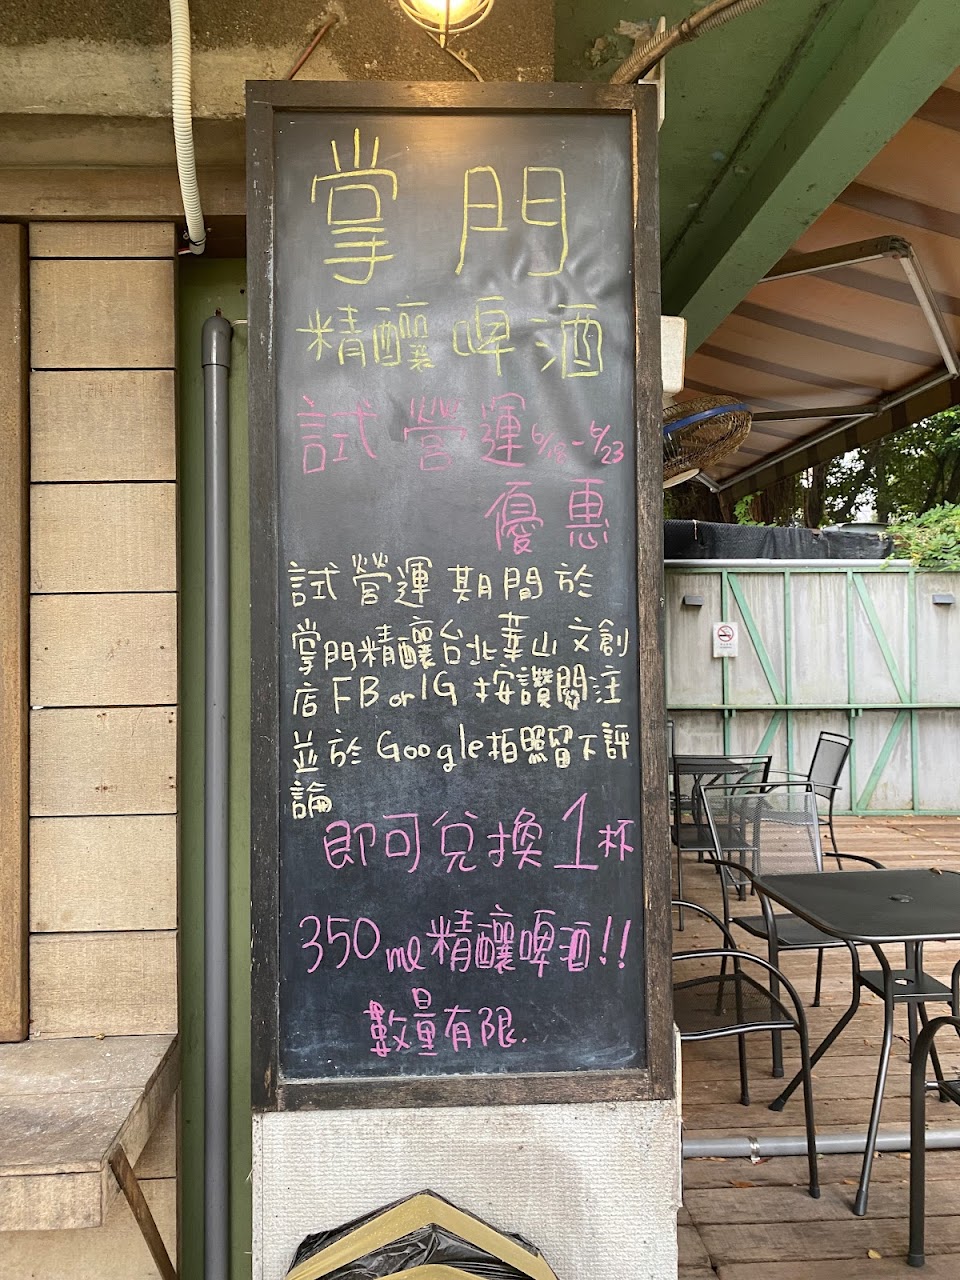 掌門
精釀啤酒
試營運6/18-6/23
優惠
試營運期間於
掌門精釀台北華山文創
店FB or IG 按讚關注
並於Google拍照留下評
論
即可兌換1杯
350ml精釀啤酒!!
數量有限.